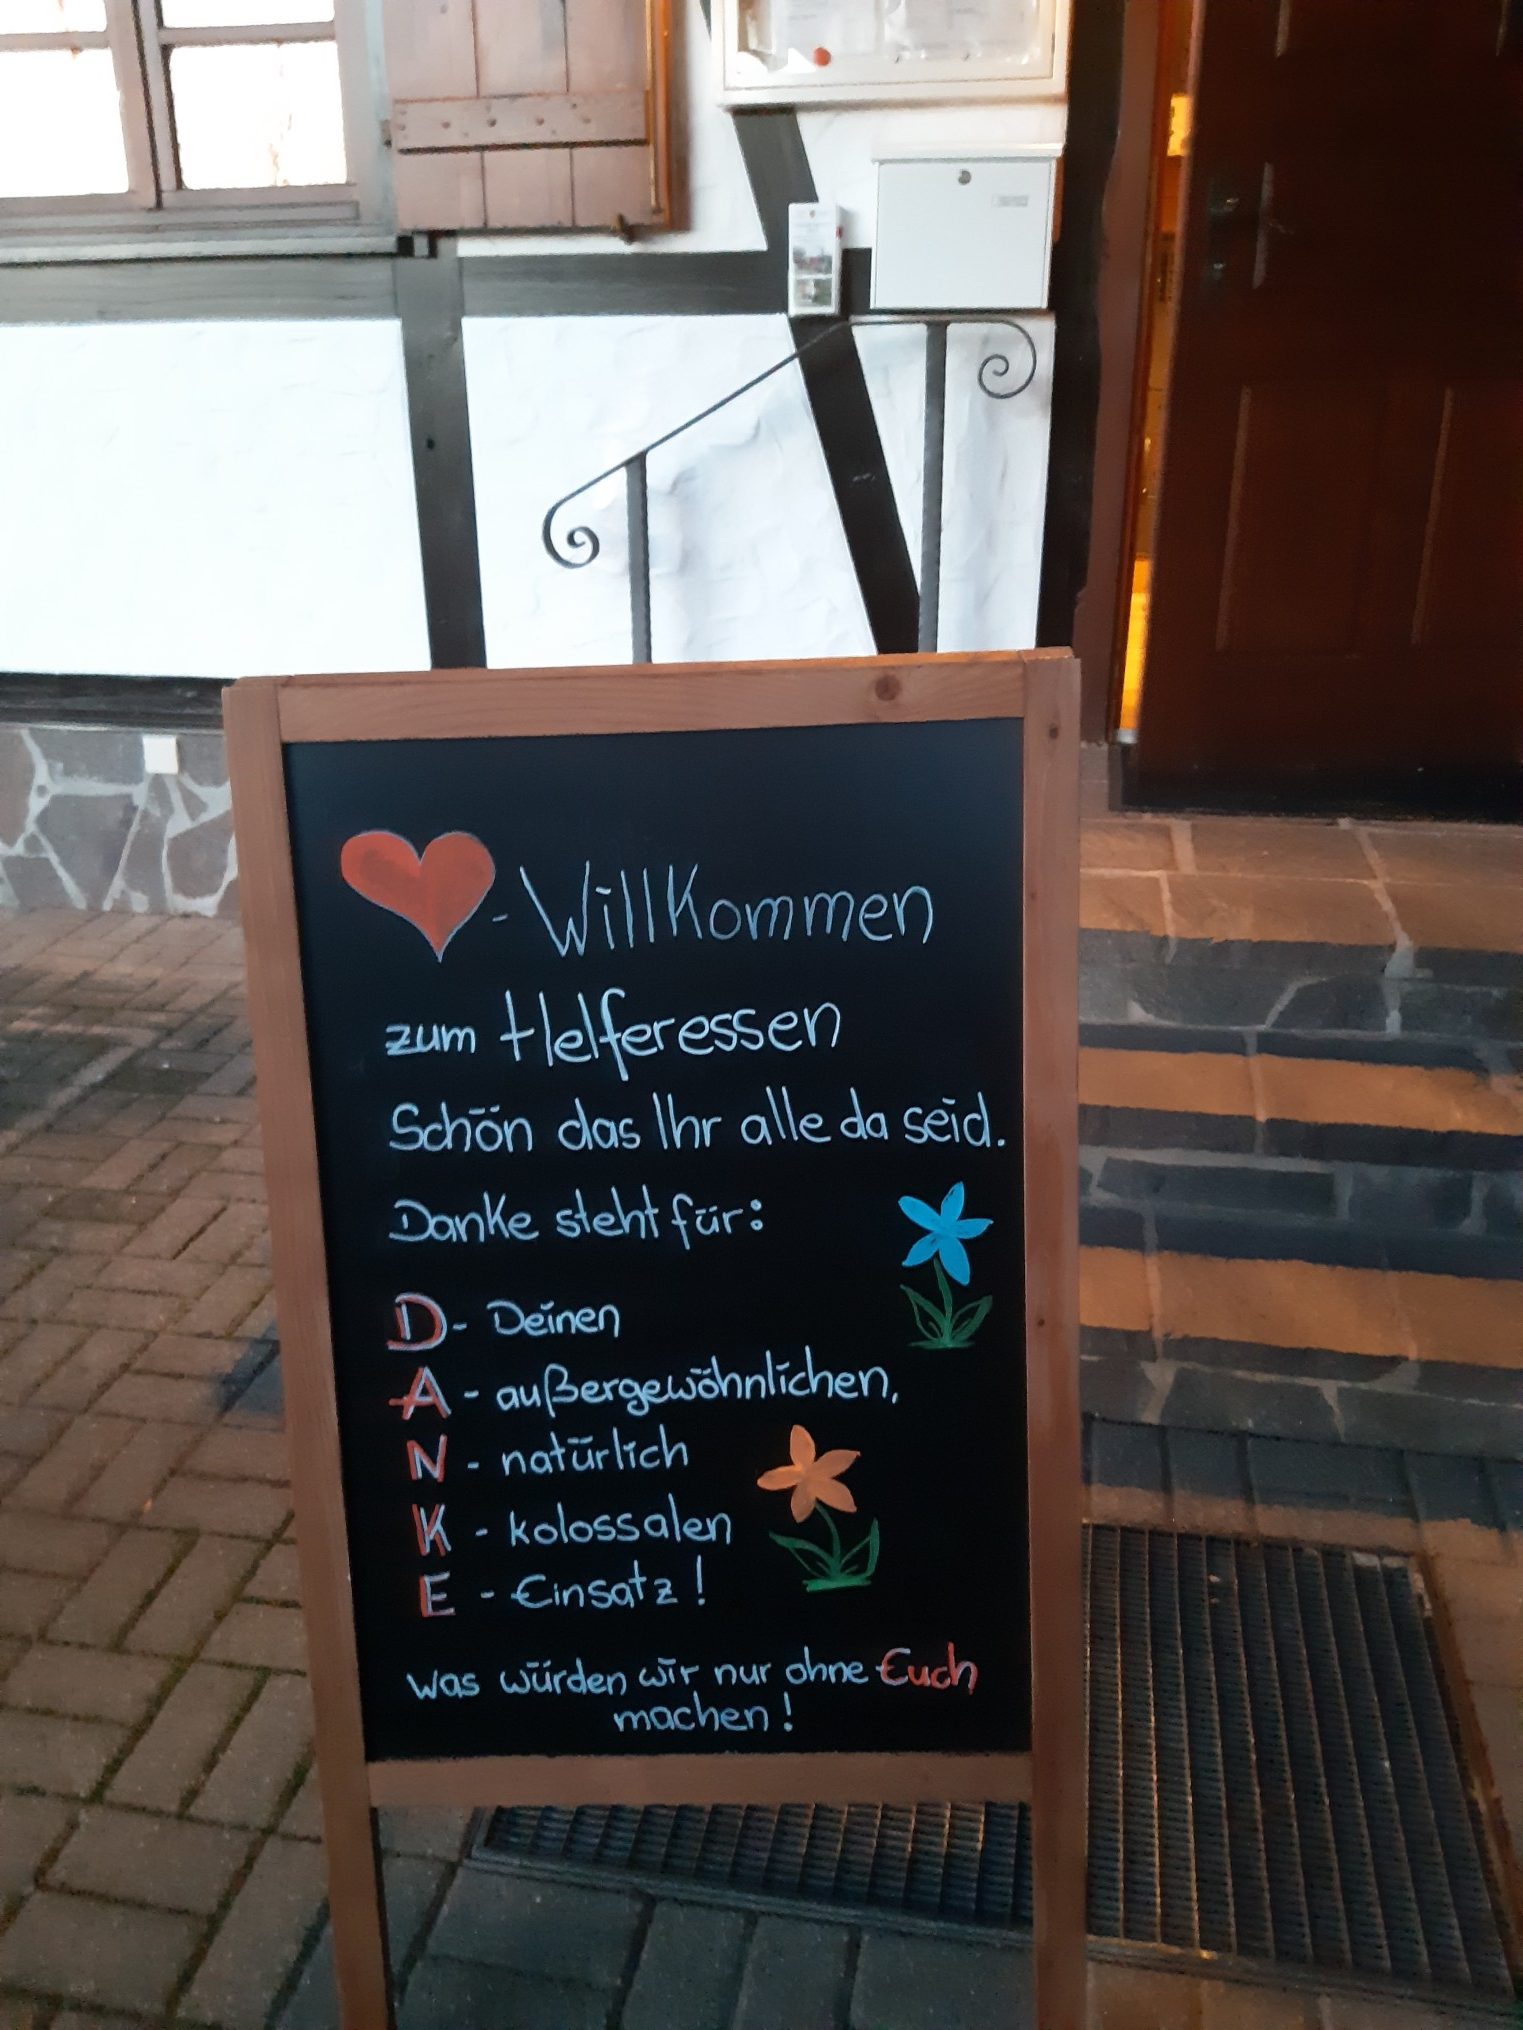 - Willkommen
zum Helferessen
Schön das Ihr alle da seid.
Danke steht für:
D - Deinen
A - außergewöhnlichen,
N - natürlich
K - kolossalen
E - Einsatz!
Was würden wir nur ohne Euch
machen!